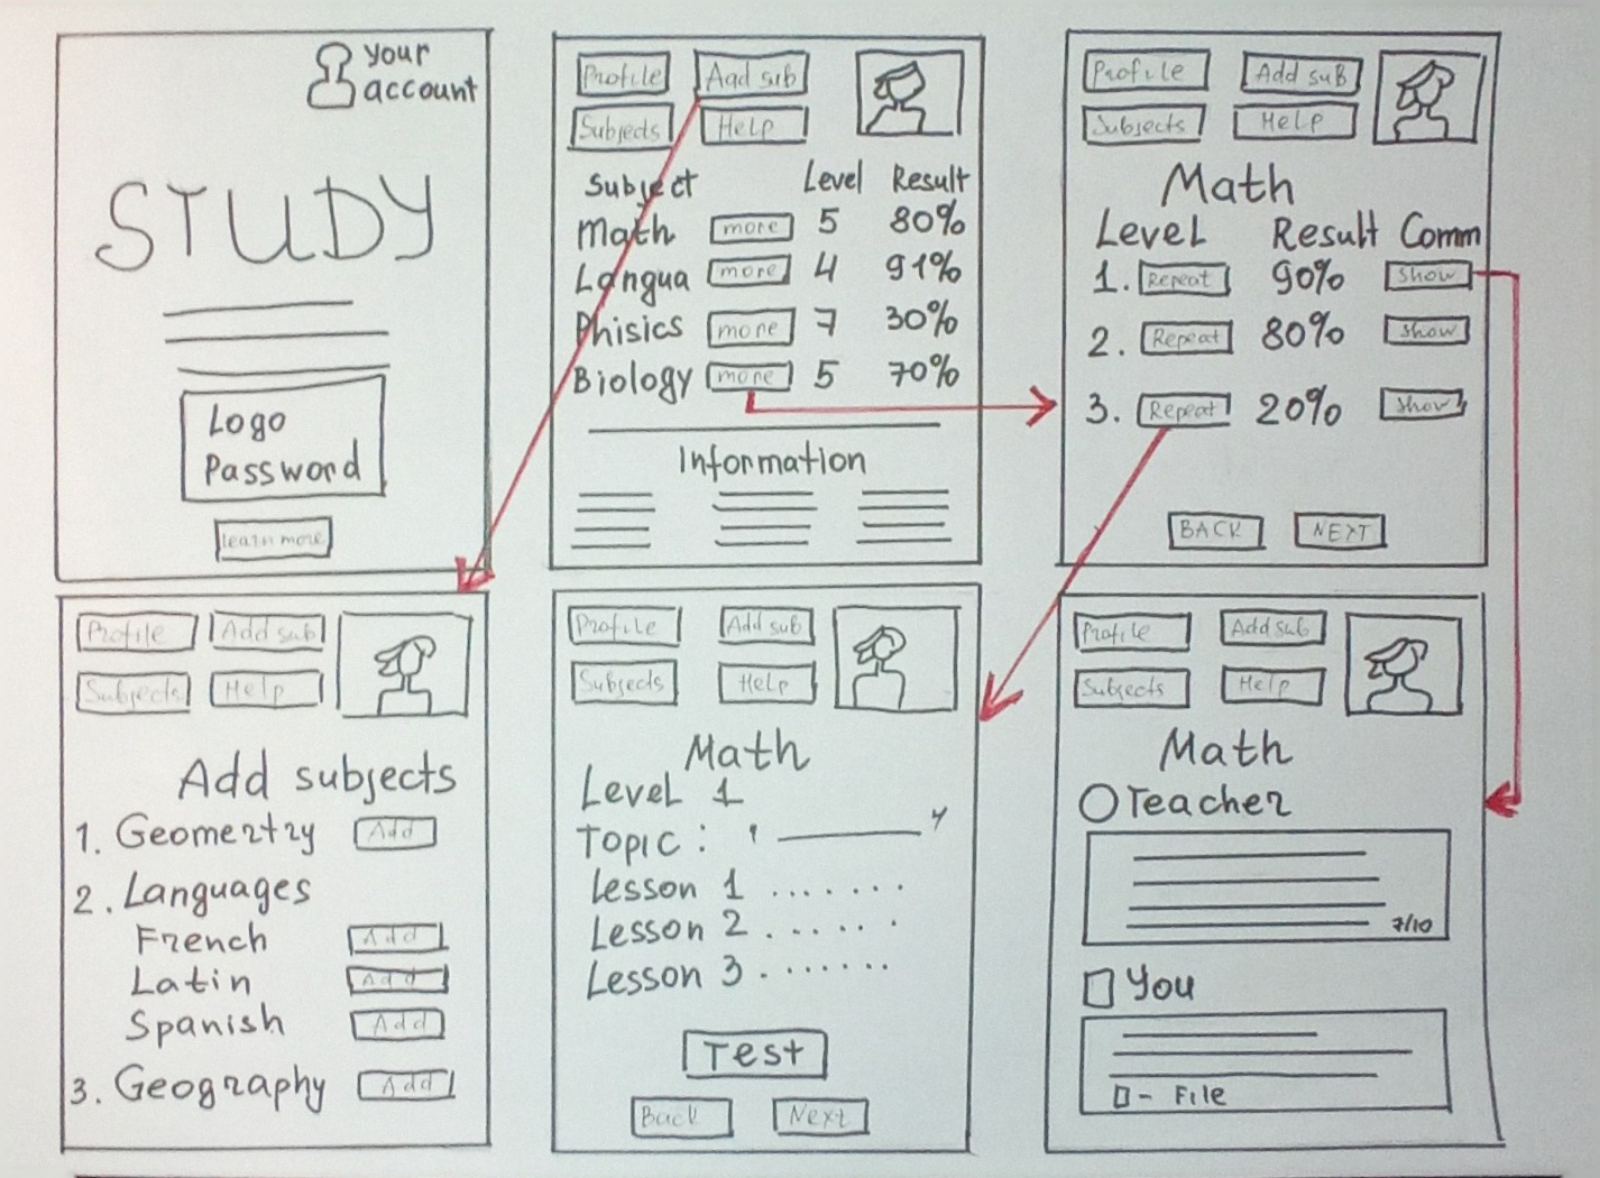 your
account
STUDY
Logo
Password
learn more
Profile Add sub
Subjects Help
Subject Level Result
Math more 5 80%
Langua more 4 91%
Phisics more 7 30%
Biology more 5 70%
Information
Profile Add sub
Subjects Help
Math
Level Result Comm
1. Repeat 90% Show
2. Repeat 80% Show
3. Repeat 20% Show
BACK NEXT
Profile Add sub
Subjects Help
Add subjects
1. Geomertry Add
2. Languages
French Add
Latin Add
Spanish Add
3. Geography Add
Profile Add sub
Subjects Help
Math
Level 1
Topic :
Lesson 1 .......
Lesson 2 ......
Lesson 3 .......
Test
Back Next
Profile Add sub
Subjects Help
Math
Teacher
7/10
You
- File